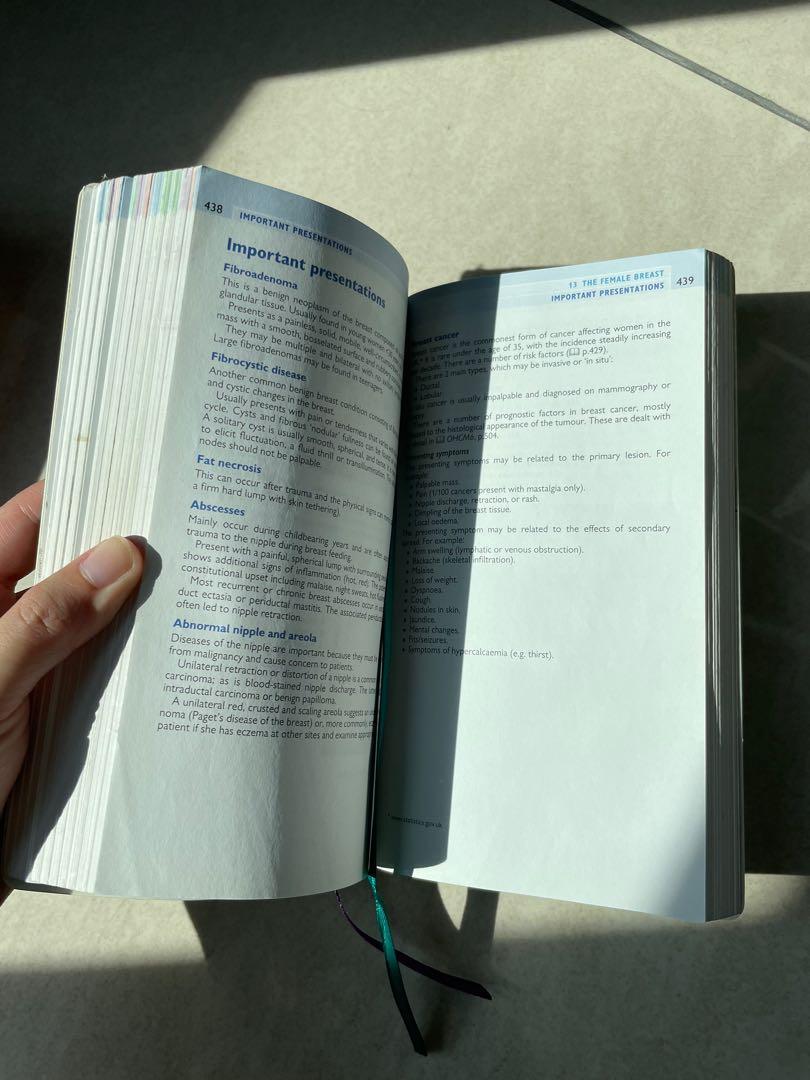 438 IMPORTANT PRESENTATIONS
Important presentations
Fibroadenoma
This is a benign neoplasm of the breast composed
glandular tissue. Usually found in young women
Presents as a painless, solid, mobile,
mass with a smooth, bosselated surface and rubbery
They may be multiple and bilateral with no
Large fibroadenomas may be found in teenagers.
Fibrocystic disease
Another common benign breast condition consisting of
and cystic changes in the breast.
Usually presents with pain or tenderness that
cycle. Cysts and fibrous 'nodular' fullness can be
A solitary cyst is usually smooth, spherical, and tense.
to elicit fluctuation, a fluid thrill or transillumination.
nodes should not be palpable.
Fat necrosis
This can occur after trauma and the physical signs can
a firm hard lump with skin tethering).
Abscesses
Mainly occur during childbearing years and are often
trauma to the nipple during breast feeding.
Present with a painful, spherical lump with surrounding
shows additional signs of inflammation (hot, red). The
constitutional upset including malaise, night sweats, hot
Most recurrent or chronic breast abscesses occur in
duct ectasia or periductal mastitis. The associated
often led to nipple retraction.
Abnormal nipple and areola
Diseases of the nipple are important because they must
from malignancy and cause concern to patients.
Unilateral retraction or distortion of a nipple is a
carcinoma; as is blood-stained nipple discharge. The
intraductal carcinoma or benign papilloma.
A unilateral red, crusted and scaling areola suggests an
noma (Paget's disease of the breast) or, more commonly,
patient if she has eczema at other sites and examine
13 THE FEMALE BREAST 439
IMPORTANT PRESENTATIONS
Breast cancer
Breast cancer is the commonest form of cancer affecting women in the
is rare under the age of 35, with the incidence steadily increasing
decade. There are a number of risk factors (p.429).
There are 2 main types, which may be invasive or 'in situ':
• Ductal
• Lobular
cancer is usually impalpable and diagnosed on mammography or
There are a number of prognostic factors in breast cancer, mostly
to the histological appearance of the tumour. These are dealt with
in OHCM6, p.504.
Presenting symptoms
The presenting symptoms may be related to the primary lesion. For
example:
• Palpable mass.
• Pain (1/100 cancers present with mastalgia only).
• Nipple discharge, retraction, or rash.
• Dimpling of the breast tissue.
• Local oedema.
The presenting symptom may be related to the effects of secondary
spread. For example:
• Arm swelling (lymphatic or venous obstruction).
• Backache (skeletal infiltration).
• Malaise.
• Loss of weight.
• Dyspnoea.
• Cough.
• Nodules in skin.
• Jaundice.
• Mental changes.
• Fits/seizures.
• Symptoms of hypercalcaemia (e.g. thirst).
* www.statistics.gov.uk